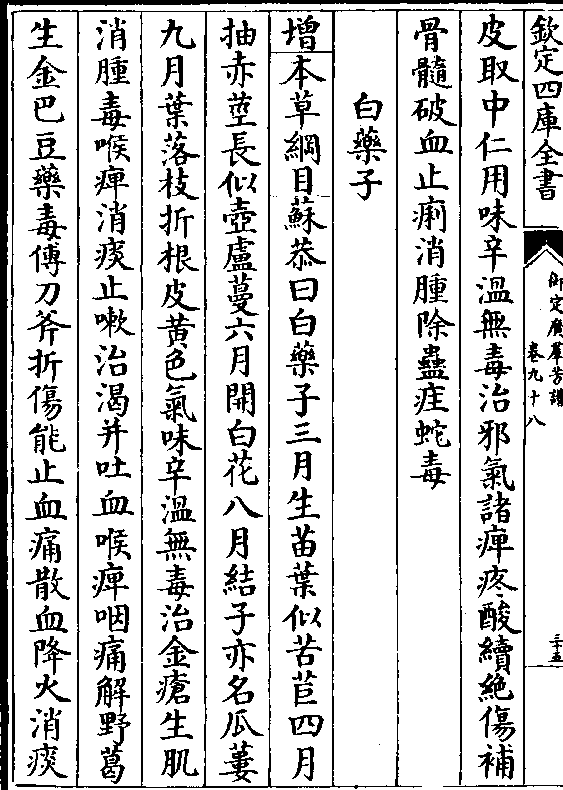 欽定四庫全書
御定廣羣芳譜
卷九十八
三十五
皮取中仁用味辛溫無毒治邪氣諸痺疼酸續絶傷補
骨髓破血止痢消腫除蠱疰蛇毒
白藥子
增本草綱目蘇恭曰白藥子三月生苗葉似苦苣四月
抽赤莖長似壺盧蔓六月開白花八月結子亦名瓜蔞
九月葉落枝折根皮黄色氣味辛溫無毒治金瘡生肌
消腫毒喉痺消痰止嗽治渴并吐血喉痺咽痛解野葛
生金巴豆藥毒傅刀斧折傷能止血痛散血降火消痰